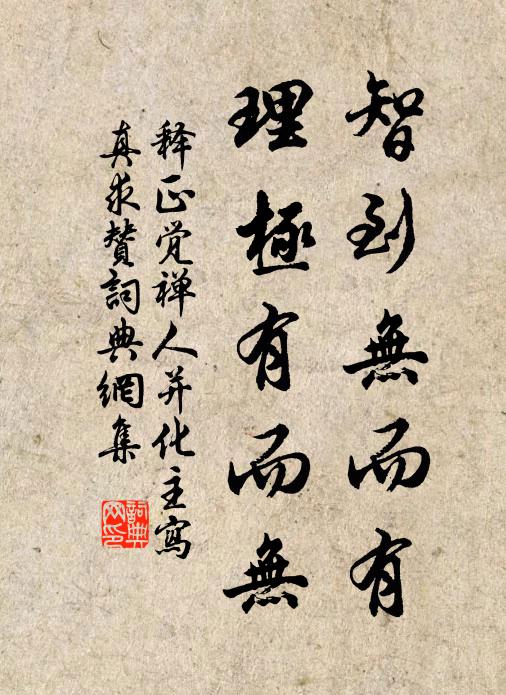 智到無而有
理極有而無
释正觉禅人并化主寫
真求贊詞典網集
詞典
网印